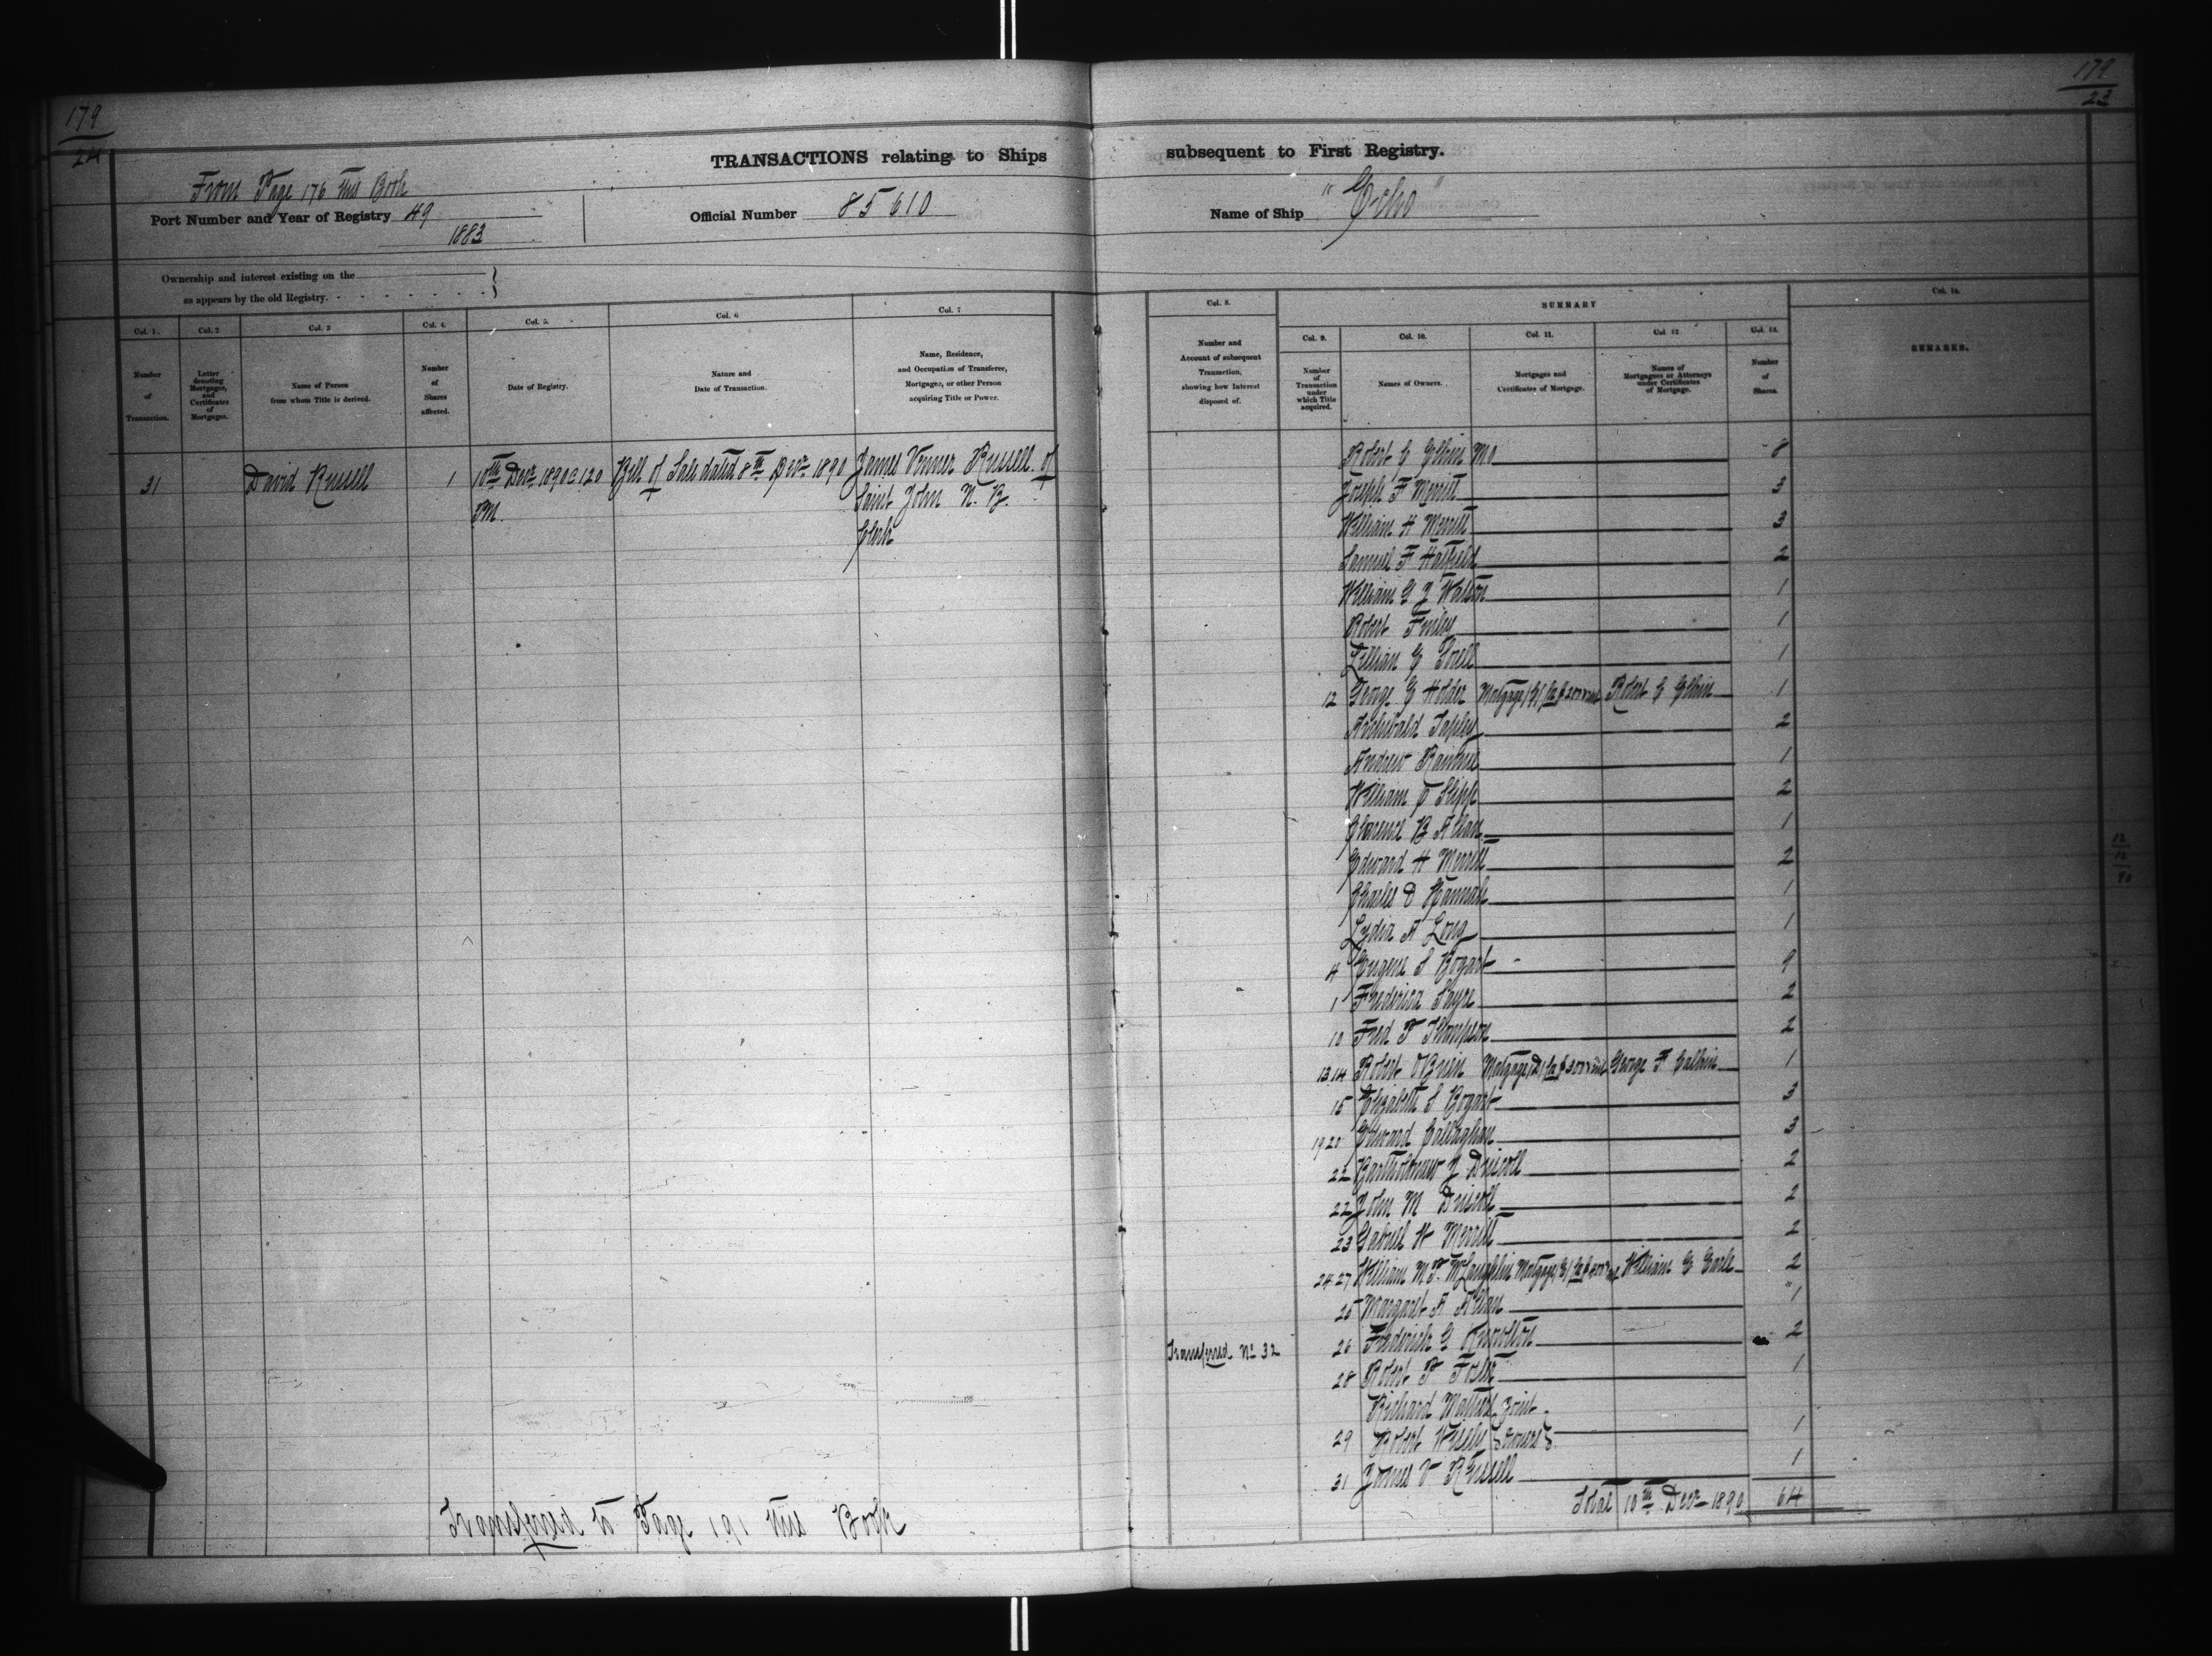 179
24
179
23
TRANSACTIONS relating to Ships subsequent to First Registry.
From Page 176 this Book
Port Number and Year of Registry 49
1883
Official Number 85610
Name of Ship "Echo"
Ownership and interest existing on the
as appears by the old Registry.
Col. 1.
Number of Transaction.
Col. 2
Letter denoting Mortgages, and Certificates of Mortgages.
Col. 3
Name of Person from whom Title is derived.
Col. 4.
Number of Shares affected.
Col. 5.
Date of Registry.
Col. 6
Nature and Date of Transaction.
Col. 7
Name, Residence, and Occupation of Transferee, Mortgagee, or other Person acquiring Title or Power.
Col. 8.
Number and Account of subsequent Transaction, showing how Interest disposed of.
SUMMARY
Col. 9.
Number of Transaction under which Title acquired.
Col. 10.
Names of Owners.
Col. 11.
Mortgages and Certificates of Mortgage.
Col. 12
Names of Mortgagees or Attorneys under Certificates of Mortgage.
Col. 13.
Number of Shares.
Col. 14.
REMARKS.
31 David Russell 1 10th Decr 1890 @ 1.20 Bill of Sale dated 8th Decr 1890 James Venner Russell of
P.M. Saint John N. B.
Clerk
Robert C Elkin 8
Joseph F Merritt 3
William H Merritt 3
Samuel F Hatfield 2
William G J Watson 1
Robert 1
Lillian 1
12 George E Holder Mortgage Robert C Elkin 1
Archibald Tapley 2
Andrew 1
William 2
Clarence B Allan 1
Edward H Merritt 2
Charles D Hannah 1
Lydia A Long 1
4 Eugene S Bogart 9
1 Frederica Sayre 2
10 Fred P Thompson 2
13.14 Robert OBrien Mortgage George F Calkin 1
15 Elizabeth S Bogart 3
19 20 Edward Callaghan 3
22 Bartholomew J Driscoll 2
22 John M Driscoll 2
23 Gabriel W Merritt 2
24 27 William McLaughlin Mortgage William G Earle 2
25 Margaret A Allan 1
Transferred No 32 26 Frederick G 2
28 Robert Foster 1
Richard Joint
29 Robert Wisely Owners 1
31 James V Russell 1
Total 10th Decr 1890 64
Transferred to Page 191 this Book